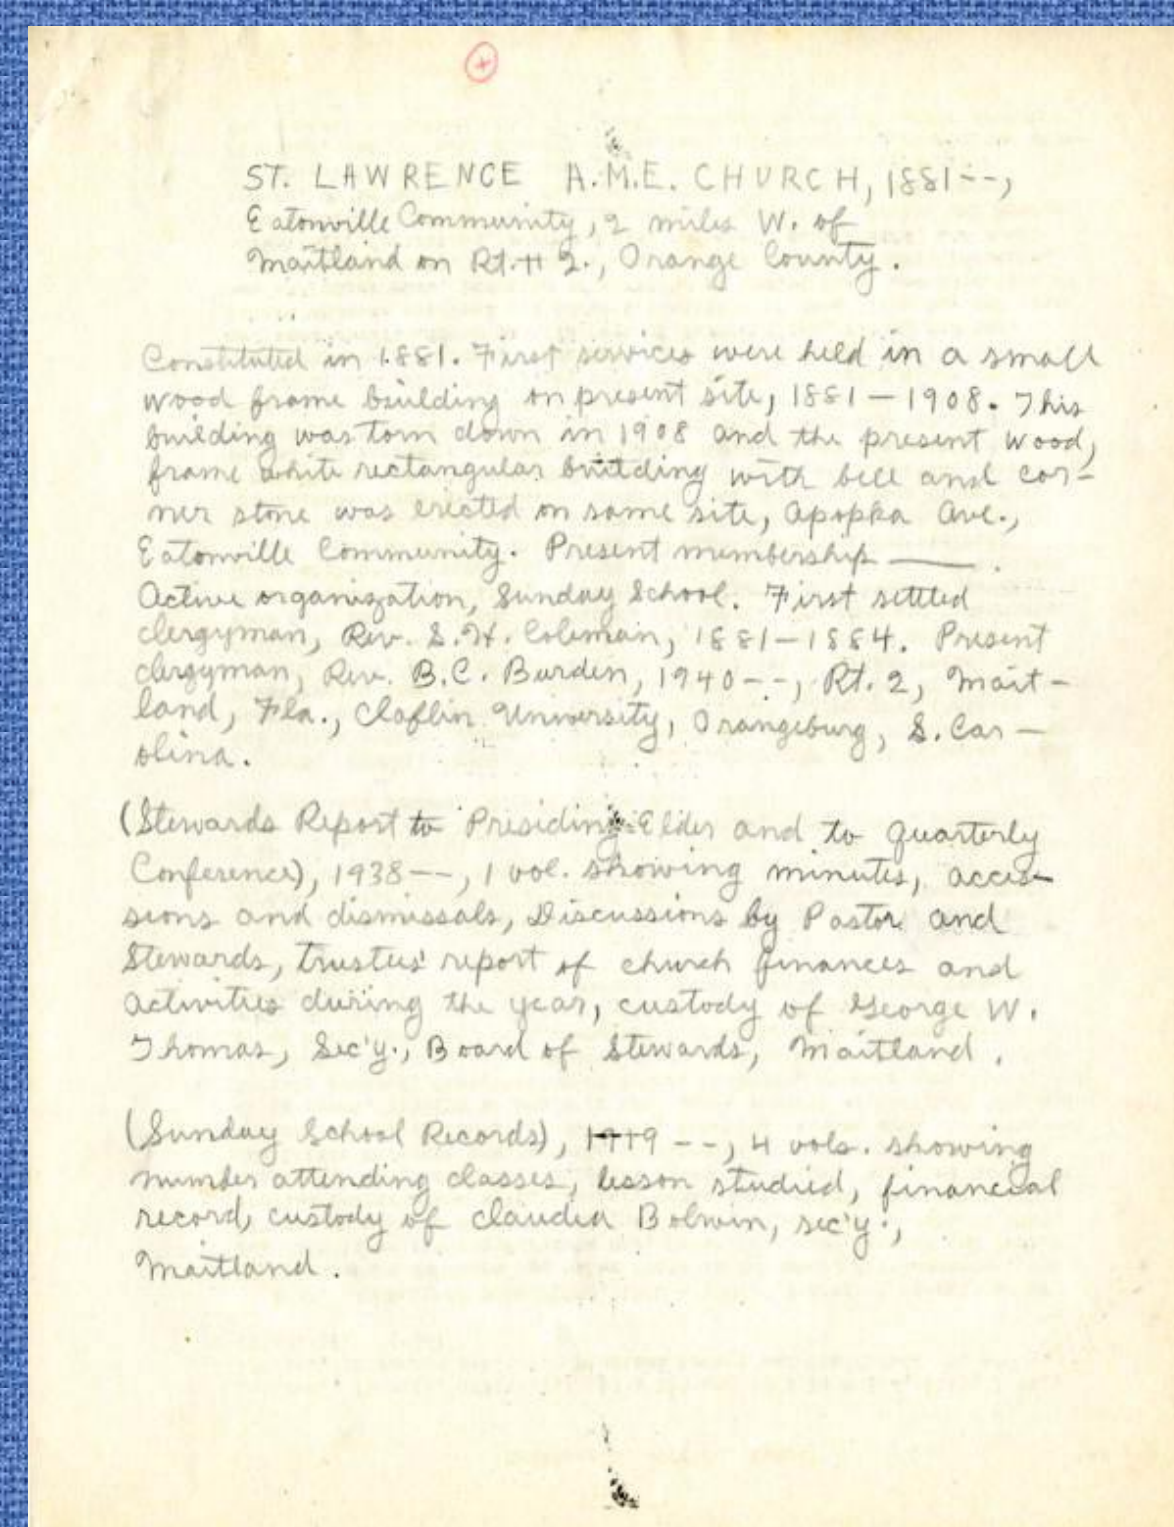 +
ST. LAWRENCE A.M.E. CHURCH, 1881--,
Eatonville Community, 2 miles W. of
Maitland on Rt.# 2., Orange County.
Constituted in 1881. First services were held in a small
wood frame building on present site, 1881-1908. This
building was torn down in 1908 and the present wood,
frame white rectangular building with bell and cor-
ner stone was erected on same site, Apopka Ave.,
Eatonville Community. Present membership ——.
Active organization, Sunday School. First settled
clergyman, Rev. S.H. Coleman, 1881-1884. Present
clergyman, Rev. B.C. Burden, 1940--, Rt. 2, Mait-
land, Fla., Claflin University, Orangeburg, S. Car-
olina.
(Stewards Report to Presiding Elder and to Quarterly
Conference), 1938--, 1 vol. showing minutes, acces-
sions and dismissals, Discussions by Pastor and
Stewards, trustees' report of church finances and
activities during the year, custody of George W.
Thomas, Sec'y., Board of Stewards, Maitland.
(Sunday School Records), 1919 --, 4 vols. showing
number attending classes, lesson studied, financial
record, custody of Claudia sec'y.,
Maitland.